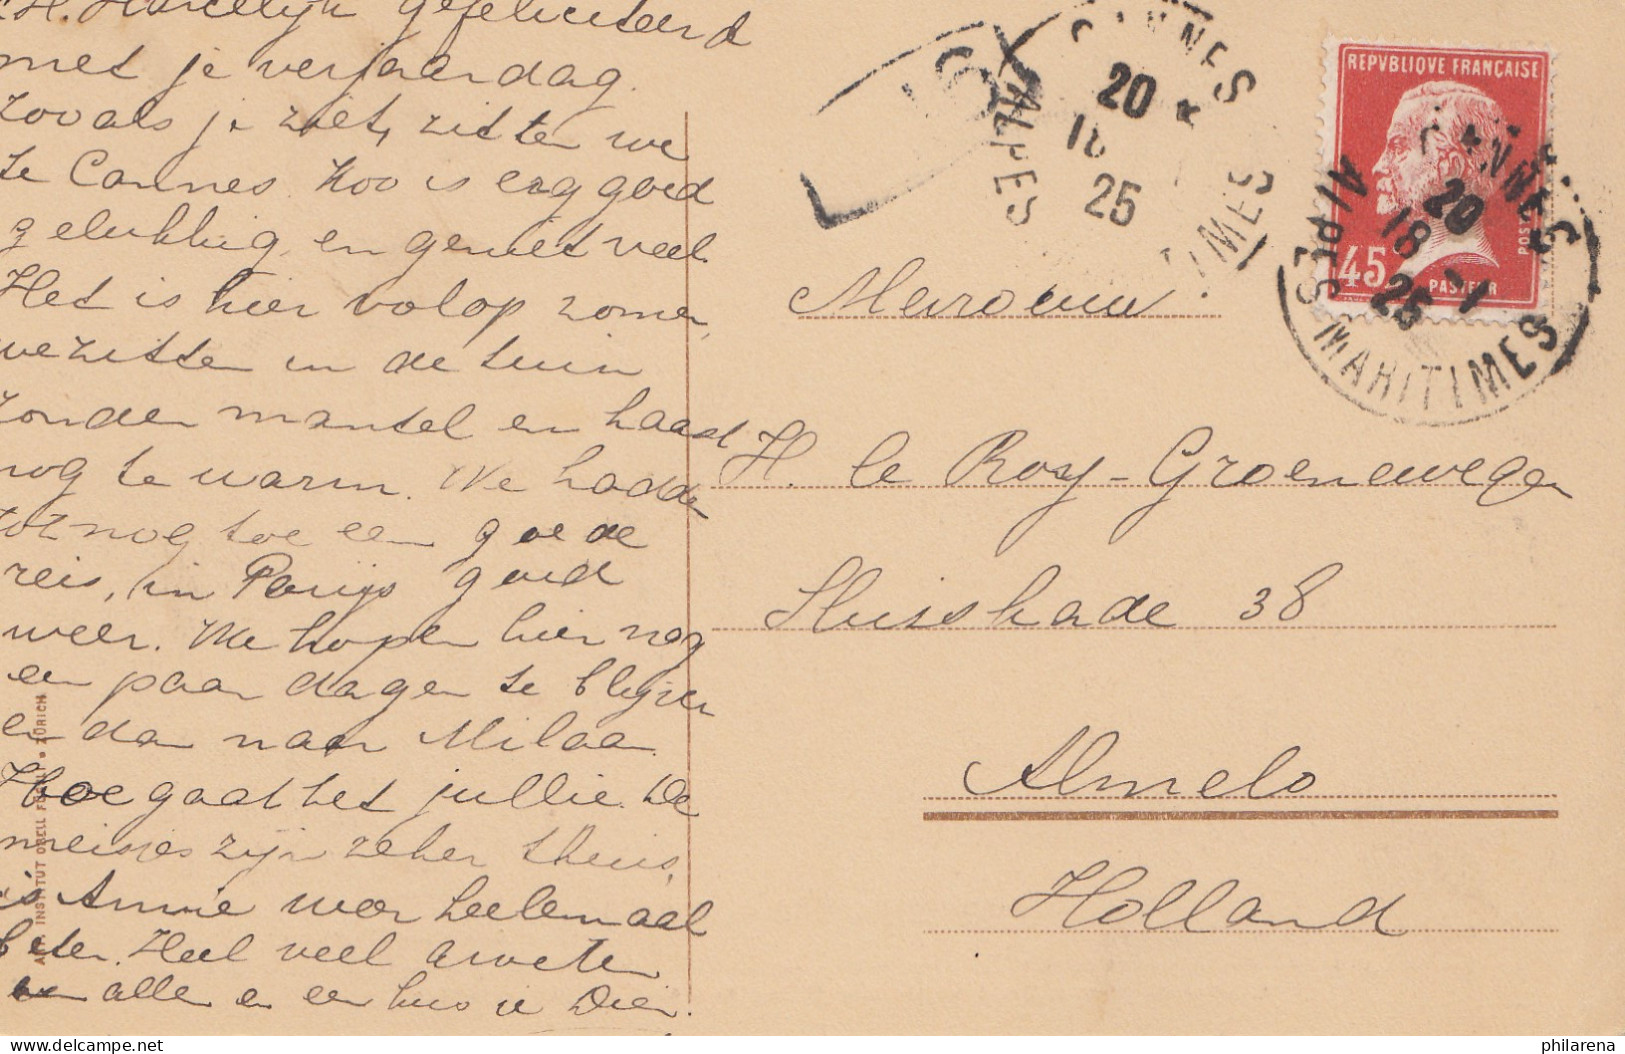 gefeliciteerd
met je verjaardag.
zooals je ziet, zitten we
te Cannes. Koo is erg goed
gelukkig en geniet veel.
Het is hier volop zomer,
we zitten in de tuin
zonder mantel en haast
nog te warm. We hadden
tot nog toe een goede
reis, in Parijs goed
weer. We hopen hier nog
een paar dagen te blijven
en dan naar Milaan.
Hoe gaat het jullie. De
meisjes zijn zeker thuis,
is Annie weer heelemaal
beter. Heel veel groeten
aan allen en een kus v.
ART. INSTITUT ORELL FÜSSLI • ZÜRICH
CANNES
20 *
18
25
ALPES MARITIMES
REPVBLIQVE FRANÇAISE
45c
PASTEUR
POSTES
CANNES
20
18 -1
25
ALPES MARITIMES
Mevrouw
H. le Roy-Groenewegen
Sluiskade 38
Almelo
Holland
© philarena
delcampe.net
philarena